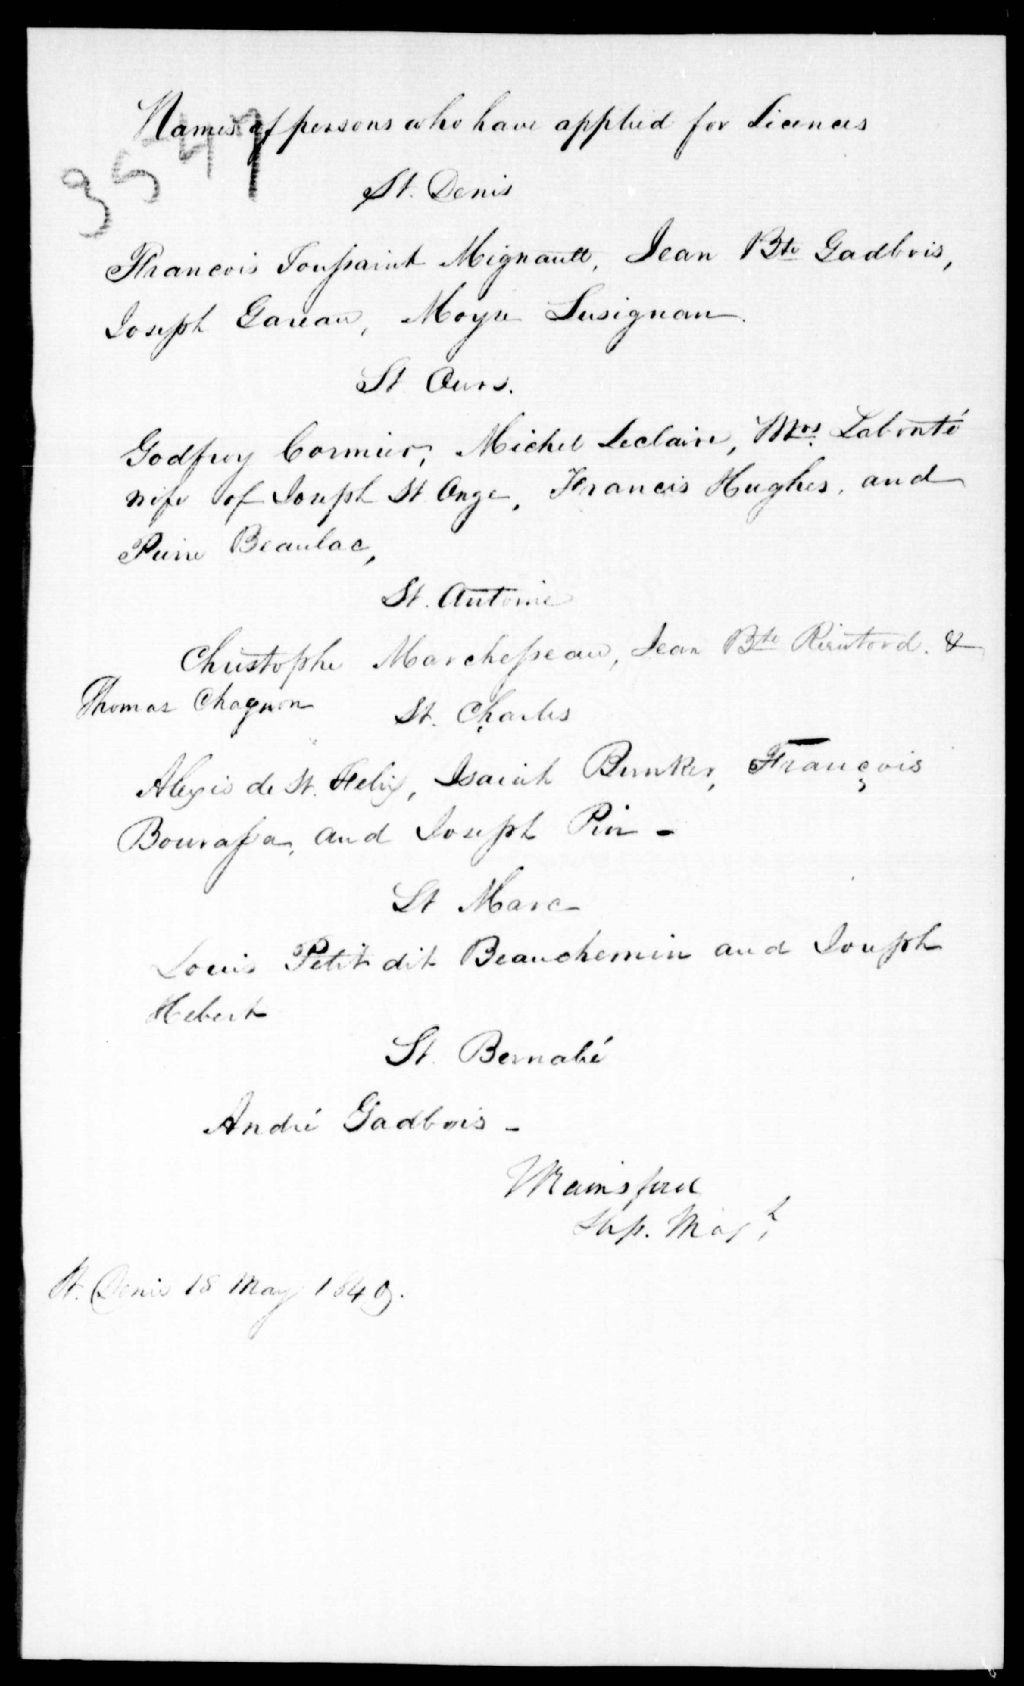 Names of persons who have applied for Licences
3547
St. Denis
Francois Toussaint Mignault, Jean Bte Gadbois,
Joseph Gareau, Moyse Lusignan.
St Ours.
Godfroy Cormier, Michel Leclaire, Mrs Labonté
wife of Joseph St Onge, Francis Hughes, and
Pierre Beaulac,
St. Antoine
Christophe Marchesseau, Jean Bte &
Thomas Chagnon
St. Charles
Alexis de St. Felix, Isaiah Bunker, François
Bourassa, and Joseph Pin -
St Marc
Louis Petit dit Beauchemin and Joseph
Hebert
St. Bernabé
André Gadbois -
Stip. Magt
St. Denis 18 May 1840.